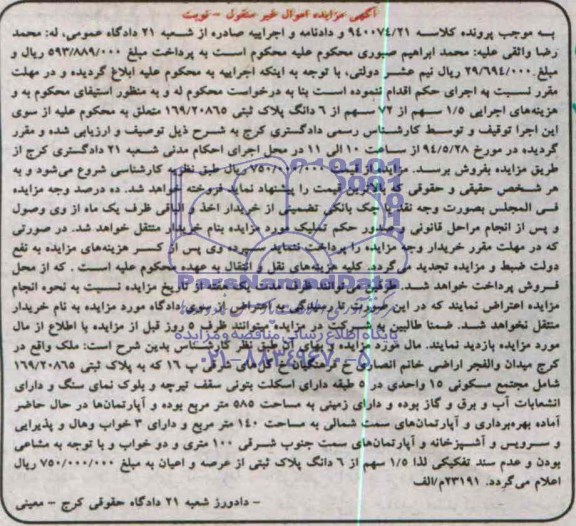 آگهی مزایده اموال غیر منقول - نوبت
به موجب پرونده کلاسه ۹۴۰۰۷۴/۲۱ و دادنامه و اجراییه صادره از شعبه ۲۱ دادگاه عمومی، له: محمد
رضا واثقی علیه: محمد ابراهیم صبوری محکوم علیه محکوم است به پرداخت مبلغ ۵۹۳/۸۸۹/۰۰۰ ریال و
مبلغ ۲۹/۶۹۴/۰۰۰ ریال نیم عشر دولتی، با توجه به اینکه اجراییه به محکوم علیه ابلاغ گردیده و در مهلت
مقرر نسبت به اجرای حکم اقدام ننموده است بنا به درخواست محکوم له و به منظور استیفای محکوم به و
هزینه‌های اجرایی ۱/۵ سهم از ۷۲ سهم از ۶ دانگ پلاک ثبتی ۱۶۹/۲۰۸۶۵ متعلق به محکوم علیه از سوی
این اجرا توقیف و توسط کارشناس رسمی دادگستری کرج به شرح ذیل توصیف و ارزیابی شده و مقرر
گردیده در مورخ ۹۴/۵/۲۸ از ساعت ۱۰ الی ۱۱ در محل اجرای احکام مدنی شعبه ۲۱ دادگستری کرج از
طریق مزایده بفروش برسد. مزایده از قیمت ۷۵۰/۰۰۰/۰۰۰ ریال طبق نظریه کارشناسی شروع می‌شود و به
هر شخص حقیقی و حقوقی که بالاترین قیمت را پیشنهاد نماید فروخته خواهد شد. ده درصد وجه مزایده
فی المجلس بصورت وجه نقد یا چک بانکی تضمینی از خریدار اخذ و الباقی ظرف یک ماه از وی وصول
و پس از انجام مراحل قانونی و صدور حکم تملیک مورد مزایده بنام خریدار منتقل خواهد شد. در صورتی
که در مهلت مقرر خریدار وجه مزایده را پرداخت ننماید سپرده وی پس از کسر هزینه‌های مزایده به نفع
دولت ضبط و مزایده تجدید می‌گردد. کلیه هزینه‌های نقل و انتقال به عهده محکوم علیه است . که از محل
فروش پرداخت خواهد شد. طرفین می‌توانند ظرف مدت یک هفته از تاریخ مزایده نسبت به نحوه انجام
مزایده اعتراض نمایند که در این صورت تا رسیدگی به اعتراض از سوی دادگاه مورد مزایده به نام خریدار
منتقل نخواهد شد. ضمنا طالبین به شرکت در مزایده میتوانند ظرف ۵ روز قبل از مزایده با اطلاع از مال
مورد مزایده بازدید نمایند. مال مورد مزایده و بهای آن طبق نظر کارشناس بدین شرح است: ملک واقع در
کرج میدان والفجر اراضی خانم انصاری خ فرهنگیان خ گل‌های شرقی پ ۱۶ که به پلاک ثبتی ۱۶۹/۲۰۸۶۵
شامل مجتمع مسکونی ۱۵ واحدی در ۵ طبقه دارای اسکلت بتونی سقف تیرچه و بلوک نمای سنگ و دارای
انشعابات آب و برق و گاز بوده و دارای زمینی به مساحت ۵۸۵ متر مربع بوده و آپارتمان‌ها در حال حاضر
آماده بهره‌برداری و آپارتمان‌های سمت شمالی به مساحت ۱۴۰ متر مربع و دارای ۳ خواب وهال و پذیرایی
و سرویس و آشپزخانه و آپارتمان‌های سمت جنوب شرقی ۱۰۰ متری و دو خواب و با توجه به مشاعی
بودن و عدم سند تفکیکی لذا ۱/۵ سهم از ۶ دانگ پلاک ثبتی از عرصه و اعیان به مبلغ ۷۵۰/۰۰۰/۰۰۰ ریال
اعلام می‌گردد. ۲۳۱۹۱/م/الف
- دادورز شعبه ۲۱ دادگاه حقوقی کرج - معینی
پایگاه اطلاع رسانی مناقصه و مزایده
۰۲۱-۸۸۳۴۹۶۷۰-۵